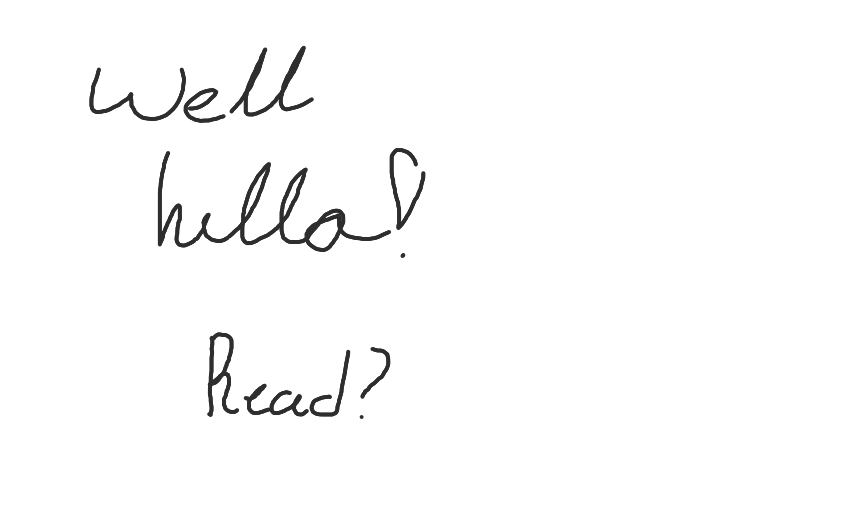 Well
hello!
Read?